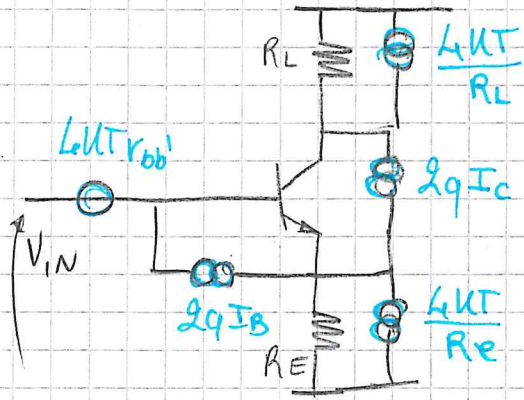 RL
4KT
RL
4KTrbb'
2qIc
VIN
2qIB
4KT
Re
RE